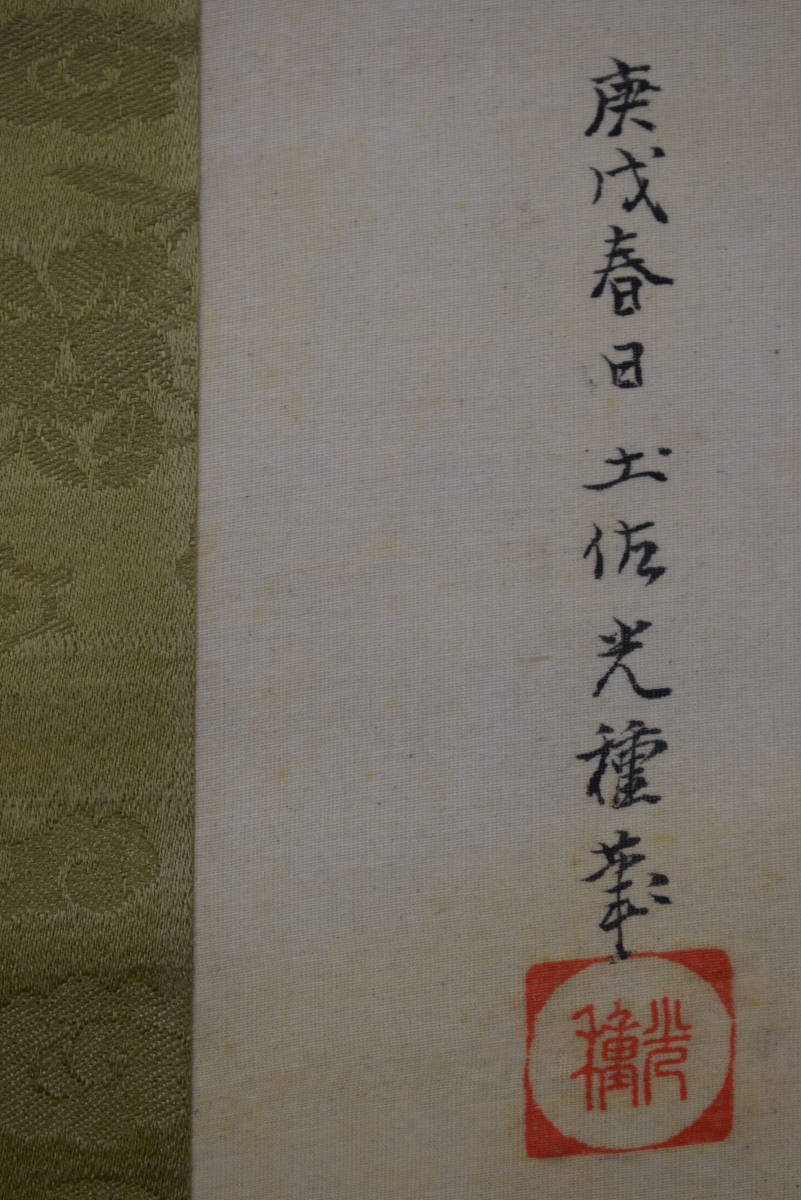 庚戌春日 土佐光種筆
光種